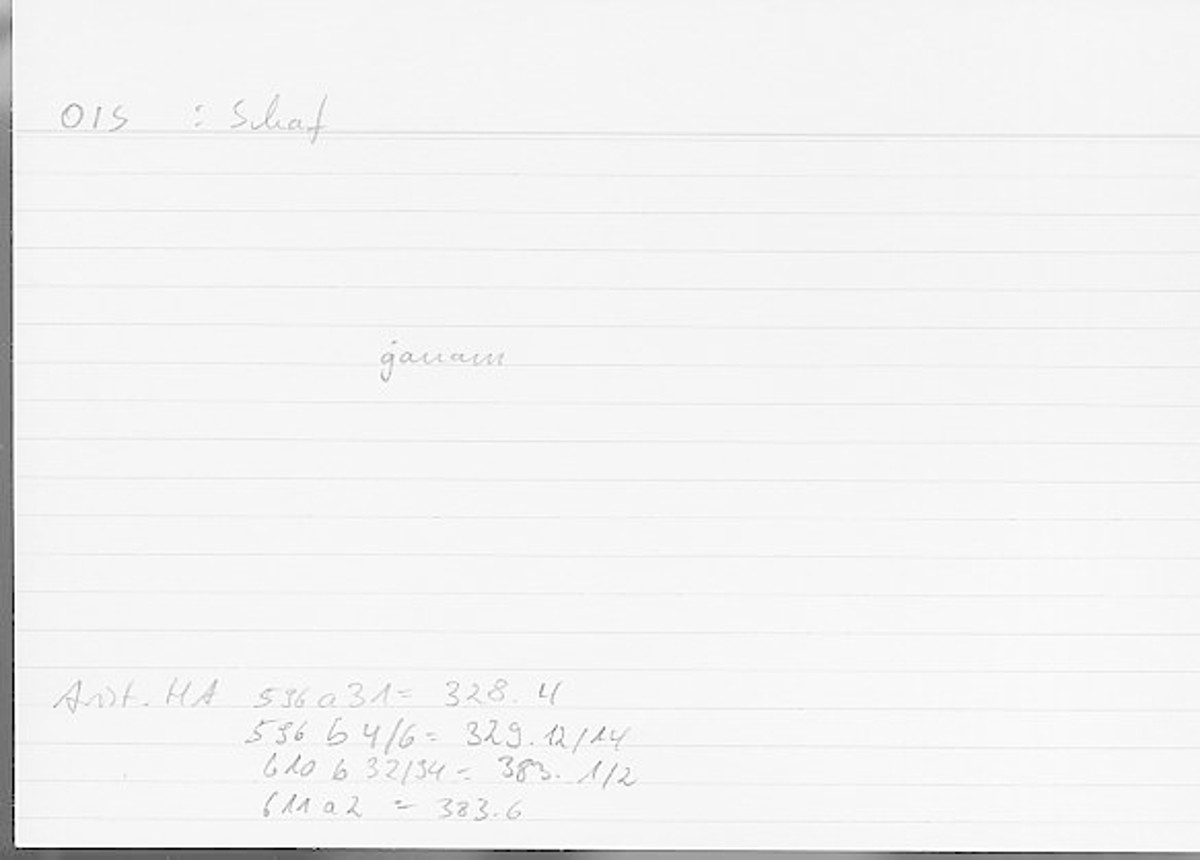 OIS : Schaf
ġanam
Arist. HA 596 a 31 = 328.4
596 b 4/6 = 329.12/14
610 b 32/34 = 383.1/2
611 a 2 = 383.6